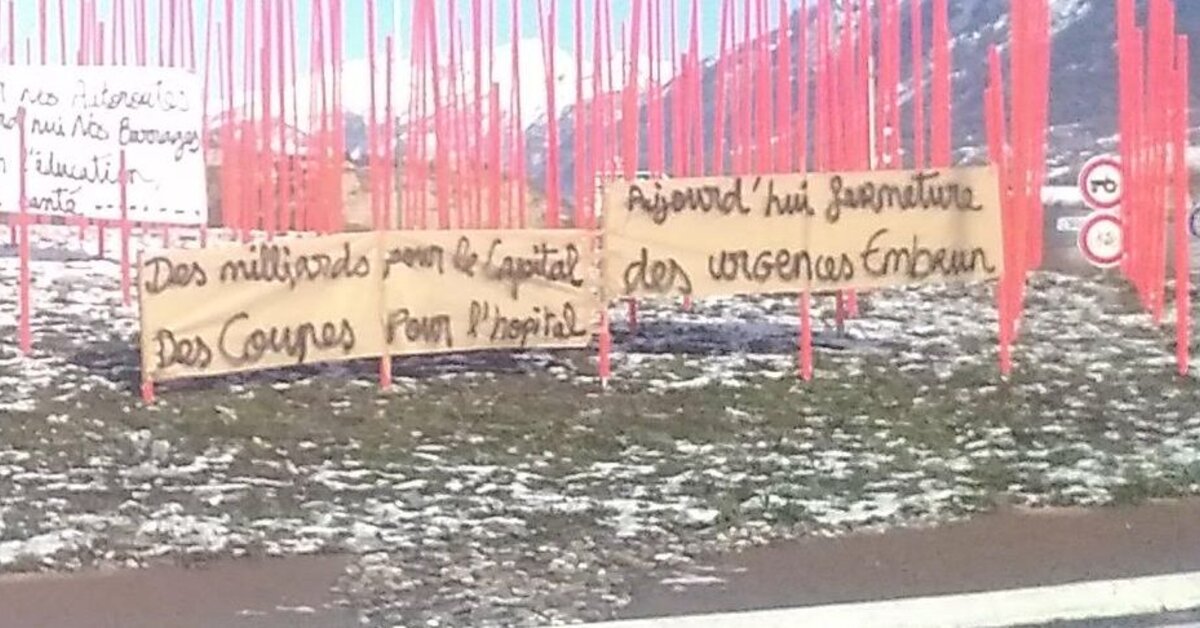 nos Autoroutes
hui Nos Barrages
l'éducation,
anté, -------
Des milliards pour le Capital
Des Coupes Pour l'hopital
Ajourd'hui fermeture
des urgences Embrun